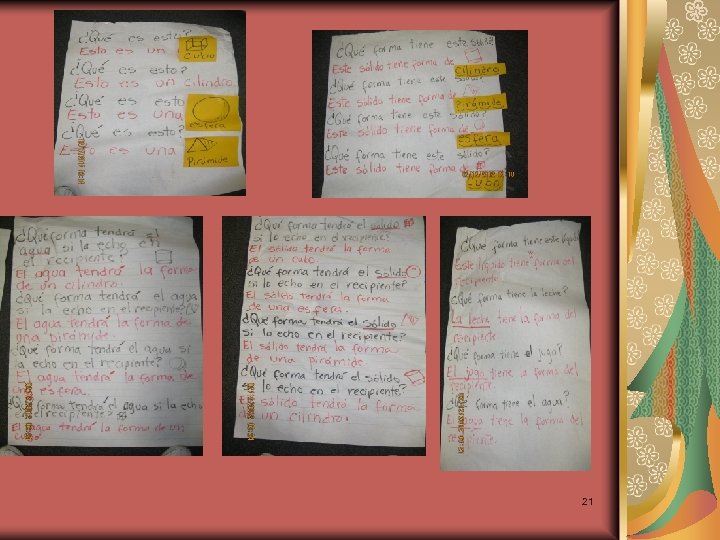 ¿Qué es esto?
Esto es un cubo
¿Qué es esto?
Esto es un cilindro.
¿Qué es esto
Esto es una
esfera
¿Qué es esto?
Esto es una Pirámide
¿Qué forma tiene este sólido?
Este sólido tiene forma de
cilindro
¿Qué forma tiene este sólido?
Este sólido tiene forma de
Pirámide
¿Qué forma tiene este sólido?
Este sólido tiene forma de
esfera
¿Qué forma tiene este sólido?
Este sólido tiene forma de
cubo
¿Qué forma tendrá el
agua si lo echo en
el recipiente?
El agua tendrá la forma
de un cilindro.
¿Qué forma tendrá el agua
si la echo en el recipiente?
El agua tendrá la forma de
una pirámide.
¿Qué forma tendrá el agua si
la echo en el recipiente?
El agua tendrá la forma de
una esfera.
¿Qué forma tendrá el agua si la echo
en el recipiente?
El agua tendrá la forma de un
cubo
¿Qué forma tendrá el sólido
si lo echo en el recipiente?
El sólido tendrá la forma
de un cubo.
¿Qué forma tendrá el sólido
si lo echo en el recipiente?
El sólido tendrá la forma
de una esfera.
¿Qué forma tendrá el sólido
si lo echo en el recipiente?
El sólido tendrá la forma
de una pirámide.
¿Qué forma tendrá el sólido
si lo echo en el recipiente?
El sólido tendrá la forma
de un cilindro.
¿Qué forma tiene este líquido?
Este líquido tiene forma del
recipiente.
¿Qué forma tiene la leche?
La leche tiene la forma del
recipiente.
¿Qué forma tiene el jugo?
El jugo tiene la forma del
recipiente.
¿Qué forma tiene el agua?
El agua tiene la forma del
recipiente.
21